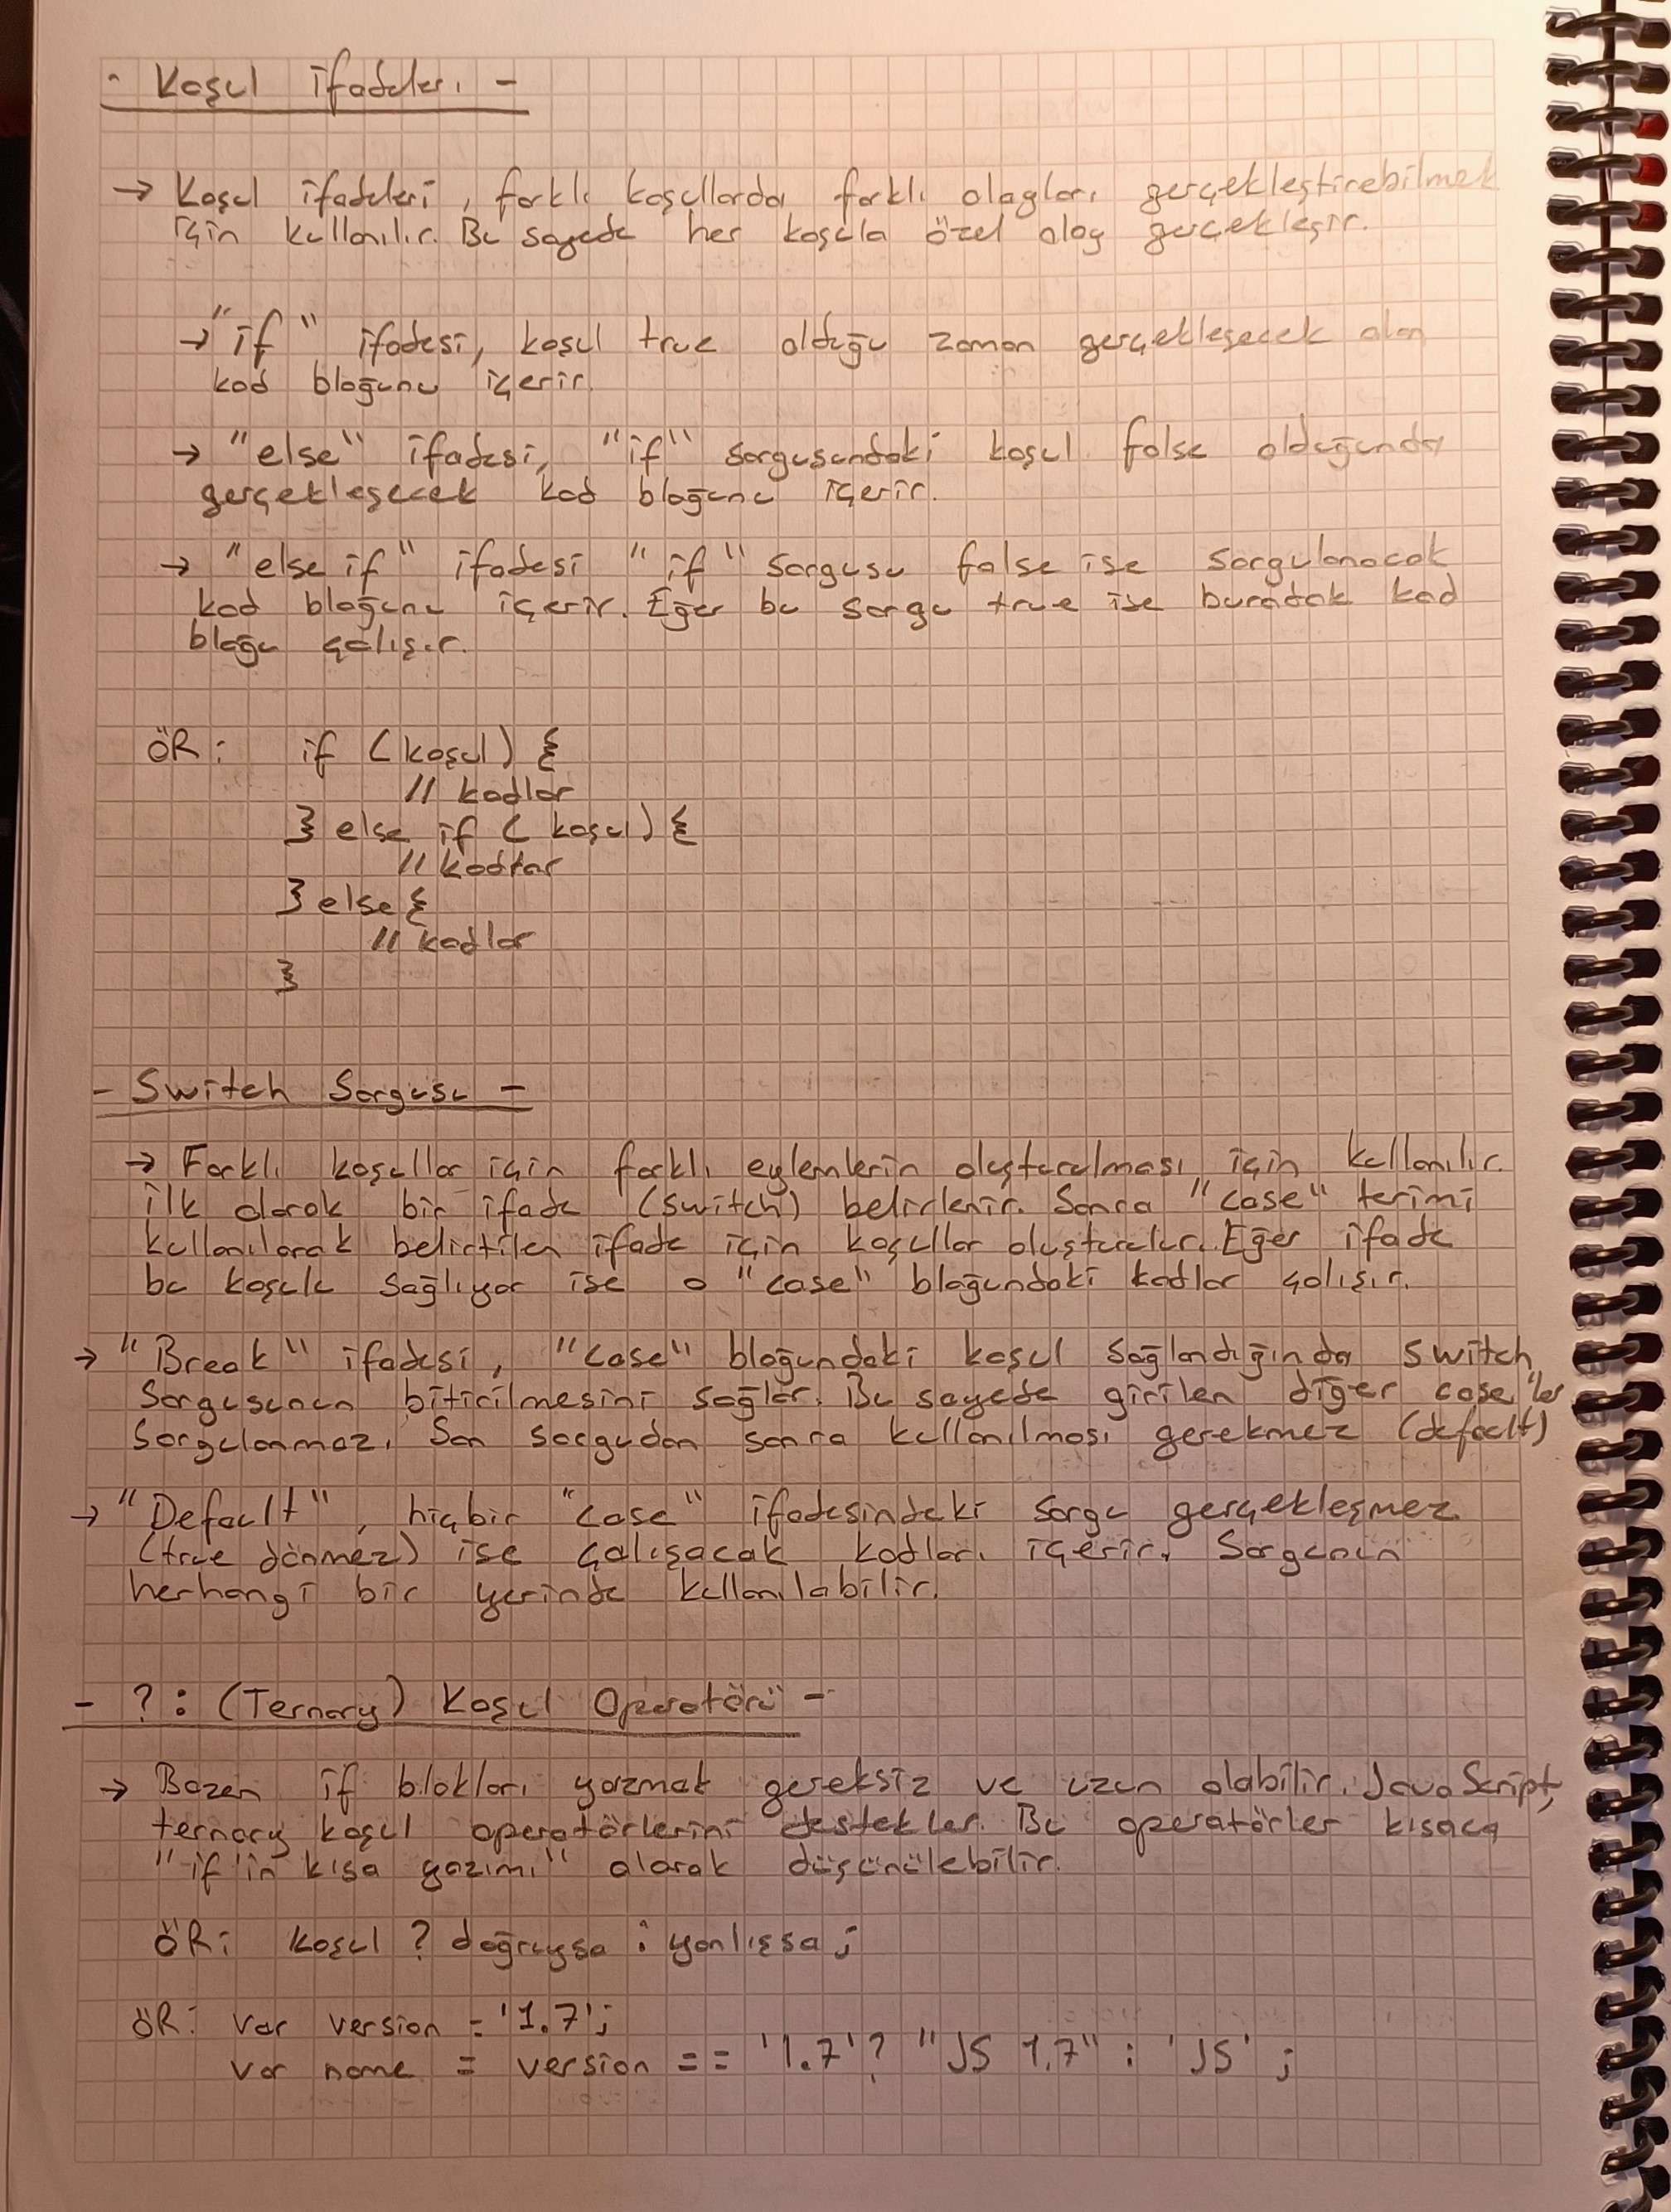 - Koşul ifadeleri -
→ Koşul ifadeleri, farklı koşullarda farklı olayları gerçekleştirebilmek
için kullanılır. Bu sayede her koşula özel olay gerçekleşir.
→ "if" ifadesi, koşul true olduğu zaman gerçekleşecek olan
kod bloğunu içerir.
→ "else" ifadesi, "if" sorgusundaki koşul false olduğunda
gerçekleşecek kod bloğunu içerir.
→ "else if" ifadesi "if" sorgusu false ise sorgulanacak
kod bloğunu içerir. Eğer bu sorgu true ise buradak kod
bloğu çalışır.
ÖR: if (koşul) {
// kodlar
} else if (koşul) {
// kodlar
} else {
// kodlar
}
- Switch Sorgusu -
→ Farklı koşullar için farklı eylemlerin oluşturulması için kullanılır.
İlk olarak bir ifade (switch) belirlenir. Sonra "case" terimi
kullanılarak belirtilen ifade için koşullar oluşturulur. Eğer ifade
bu koşulu sağlıyor ise o "case" bloğundaki kodlar çalışır.
→ "Break" ifadesi, "case" bloğundaki koşul sağlandığında switch
sorgusunun bitirilmesini sağlar. Bu sayede girilen diğer case'ler
sorgulanmaz. Son sorgudan sonra kullanılması gerekmez (default)
→ "Default", hiçbir "case" ifadesindeki sorgu gerçekleşmez
(true dönmez) ise çalışacak kodları içerir. Sorgunun
herhangi bir yerinde kullanılabilir.
- ?: (Ternary) Koşul Operatörü -
→ Bazen if blokları yazmak gereksiz ve uzun olabilir. JavaScript,
ternary koşul operatörlerini destekler. Bu operatörler kısaca
"if'in kısa yazımı" olarak düşünülebilir.
ÖR: koşul ? doğruysa : yanlışsa ;
ÖR: var version = '1.7';
var name = version == '1.7' ? "JS 1.7" : 'JS' ;